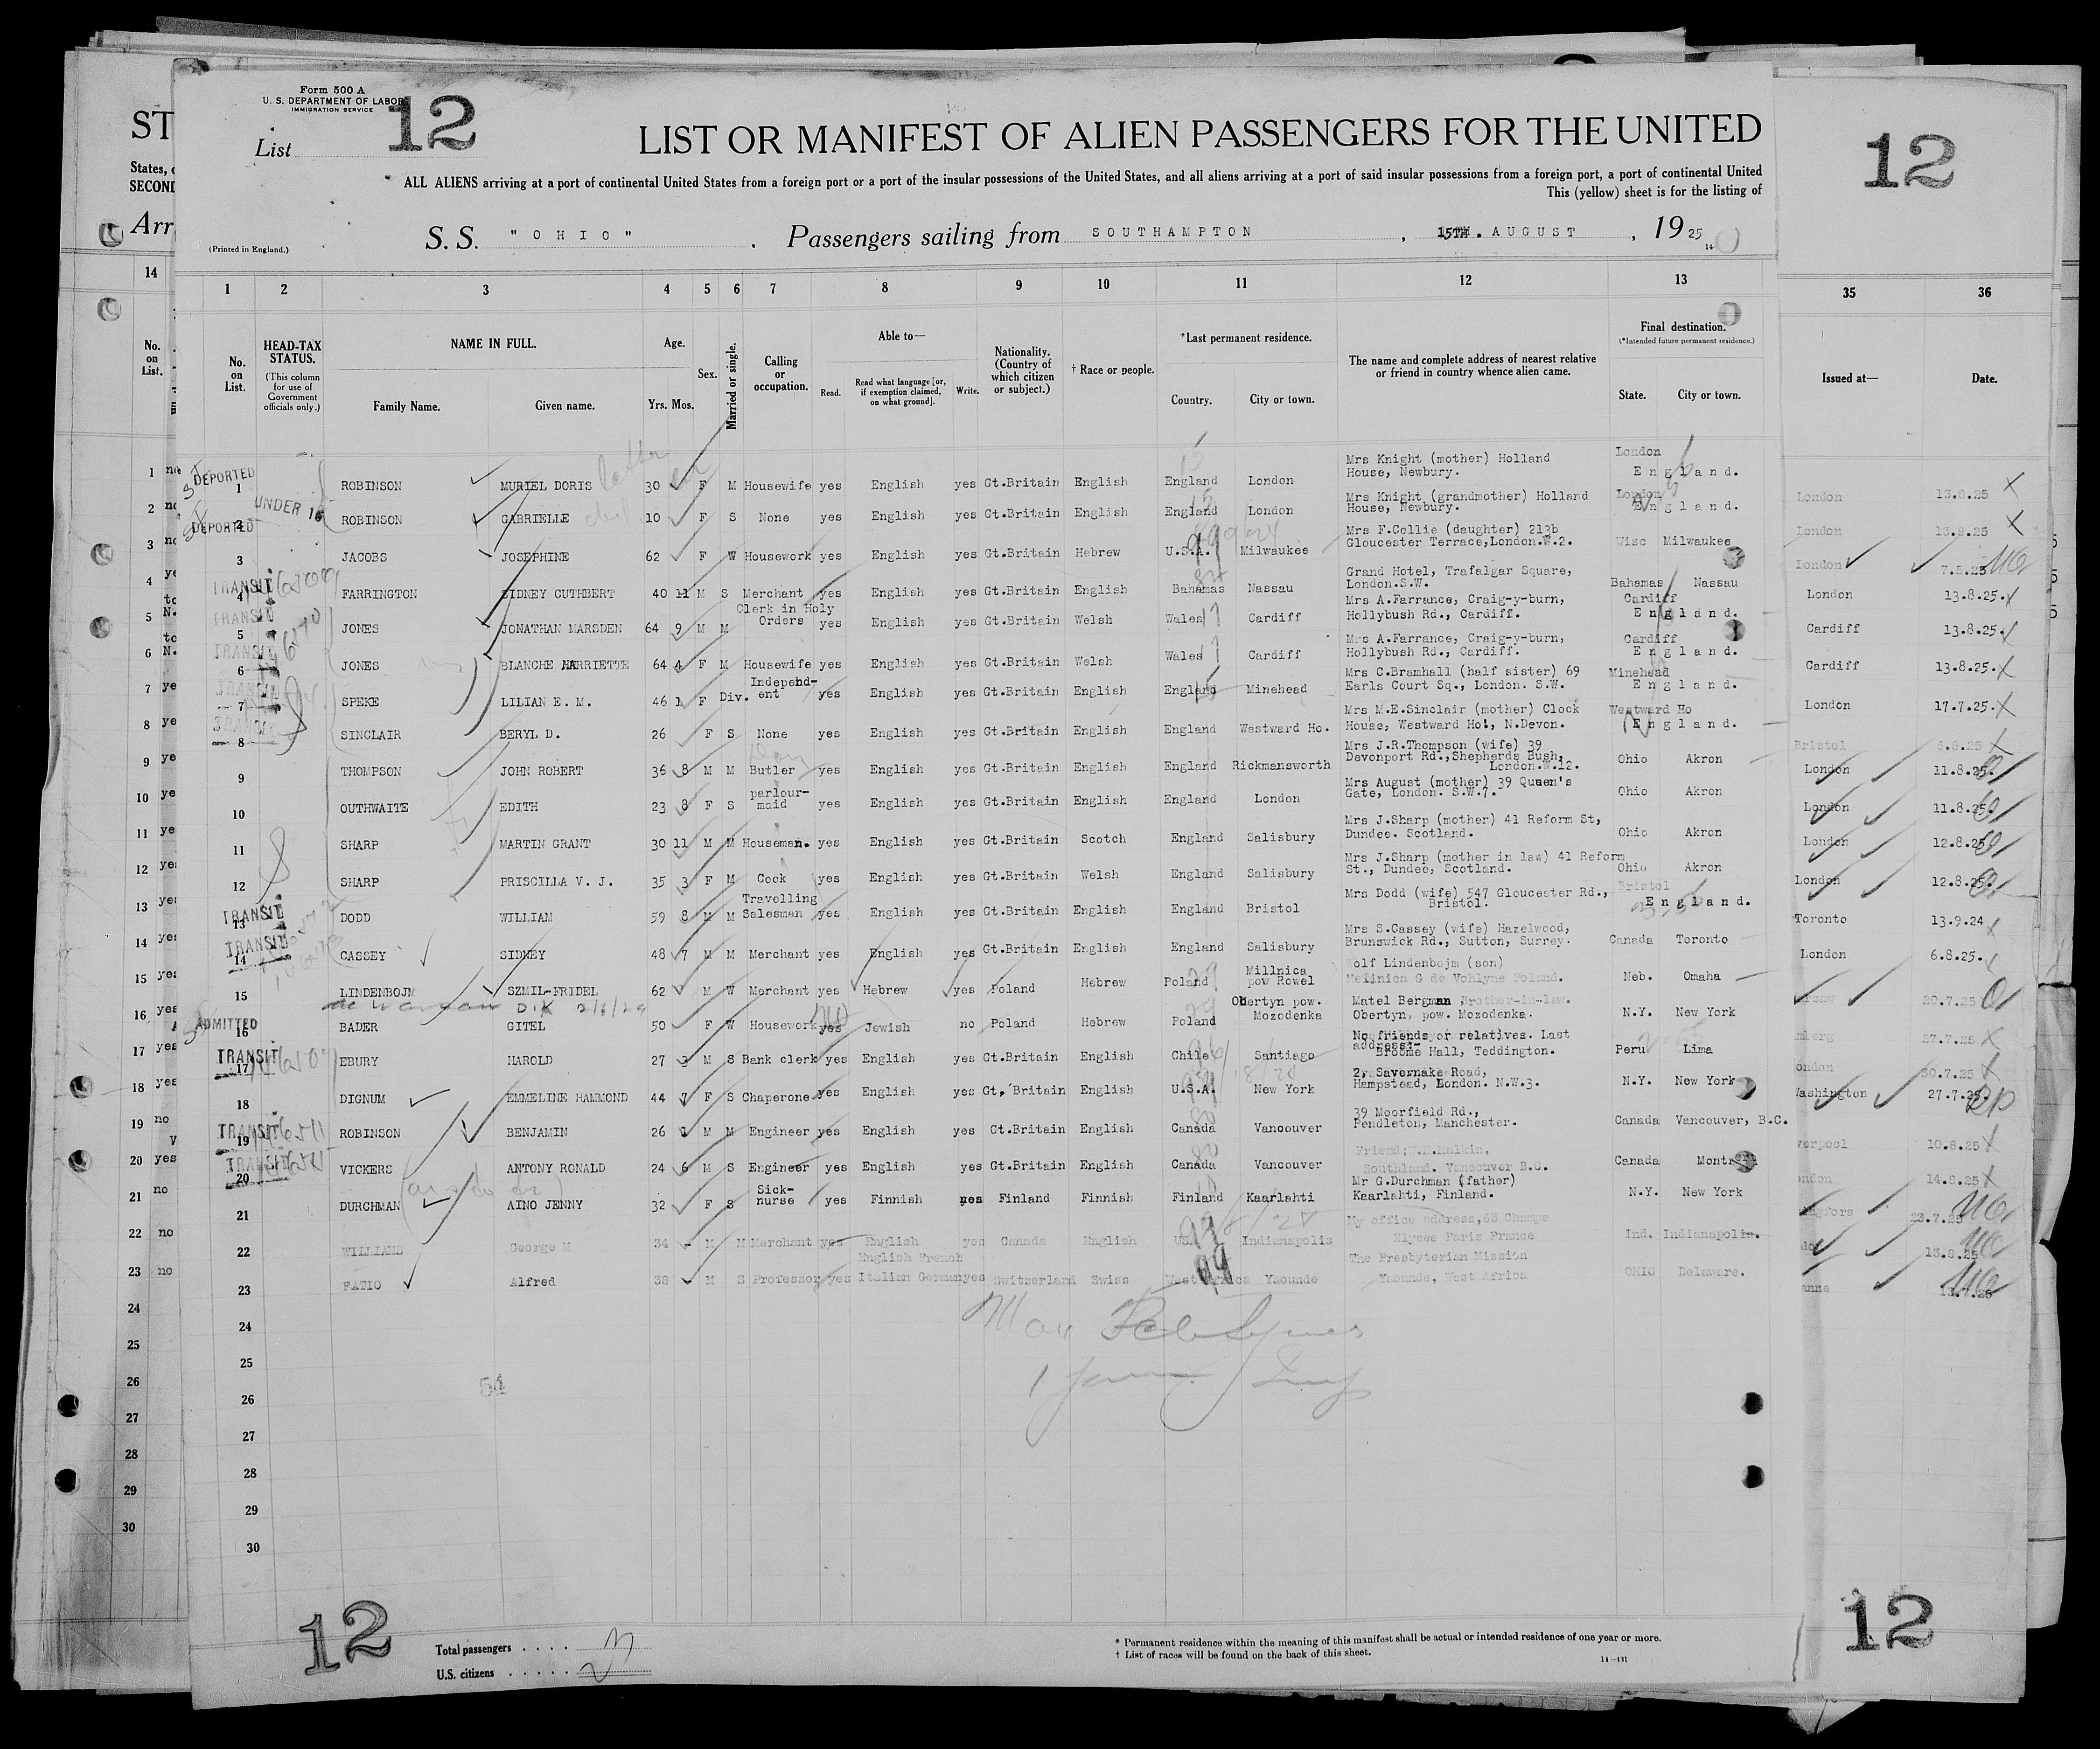 Form 500 A
U. S. DEPARTMENT OF LABOR
IMMIGRATION SERVICE
List 12
LIST OR MANIFEST OF ALIEN PASSENGERS FOR THE UNITED
ST
12
States,
SECOND
ALL ALIENS arriving at a port of continental United States from a foreign port or a port of the insular possessions of the United States, and all aliens arriving at a port of said insular possessions from a foreign port, a port of continental United
This (yellow) sheet is for the listing of
Arr
(Printed in England.)
S. S. " O H I O " . Passengers sailing from SOUTHAMPTON , 15TH. AUGUST , 19 25
14 1 2 3 4 5 6 7 8 9 10 11 12 13 35 36
No. on List.
No. on List.
HEAD-TAX STATUS.
(This column for use of Government officials only.)
NAME IN FULL.
Family Name. Given name.
Age.
Yrs. Mos.
Sex.
Married or single.
Calling or occupation.
Able to—
Read. Read what language [or, if exemption claimed, on what ground]. Write.
Nationality. (Country of which citizen or subject.)
† Race or people.
*Last permanent residence.
Country. City or town.
The name and complete address of nearest relative or friend in country whence alien came.
Final destination.
(*Intended future permanent residence.)
State. City or town.
Issued at— Date.
DEPORTED 1 ROBINSON MURIEL DORIS 30 F M Housewife yes English yes Gt.Britain English England London Mrs Knight (mother) Holland House, Newbury. London England. London 13.8.25
DEPORTED 2 UNDER 16 ROBINSON GABRIELLE 10 F S None yes English yes Gt.Britain English England London Mrs Knight (grandmother) Holland House, Newbury. London England. London 13.8.25
3 JACOBS JOSEPHINE 62 F W Housework yes English yes Gt.Britain Hebrew U.S.A. Milwaukee Mrs F.Collie (daughter) 213b Gloucester Terrace,London.W.2. Wisc Milwaukee London 7.8.25
TRANSIT 4 FARRINGTON SIDNEY CUTHBERT 40 11 M S Merchant yes English yes Gt.Britain English Bahamas Nassau Grand Hotel, Trafalgar Square, London.S.W. Bahamas Nassau London 13.8.25.
TRANSIT 5 JONES JONATHAN MARSDEN 64 9 M M Clerk in Holy Orders yes English yes Gt.Britain Welsh Wales Cardiff Mrs A.Farrance, Craig-y-burn, Hollybush Rd., Cardiff. Cardiff England. Cardiff 13.8.25.
TRANSIT 6 JONES BLANCHE HARRIETTE 64 4 F M Housewife yes English yes Gt.Britain Welsh Wales Cardiff Mrs A.Farrance, Craig-y-burn, Hollybush Rd., Cardiff. Cardiff England. Cardiff 13.8.25.
TRANSIT 7 SPEKE LILIAN E. M. 46 1 F Div. Independent yes English yes Gt.Britain English England Minehead Mrs C.Bramhall (half sister) 69 Earls Court Sq., London. S.W. Minehead England. London 17.7.25.
TRANSIT 8 SINCLAIR BERYL D. 26 F S None yes English yes Gt.Britain English England Westward Ho. Mrs M.E.Sinclair (mother) Clock House, Westward Ho!, N.Devon. Westward Ho England. Bristol 6.8.25
9 THOMPSON JOHN ROBERT 36 8 M M Butler yes English yes Gt.Britain English England Rickmansworth Mrs J.R.Thompson (wife) 39 Devonport Rd.,Shepherds Bush, London.W.12. Ohio Akron London 11.8.25.
10 OUTHWAITE EDITH 23 8 F S parlour-maid yes English yes Gt.Britain English England London Mrs August (mother) 39 Queen's Gate, London. S.W.7. Ohio Akron London 11.8.25
11 SHARP MARTIN GRANT 30 11 M M Houseman. yes English yes Gt.Britain Scotch England Salisbury Mrs J.Sharp (mother) 41 Reform St, Dundee. Scotland. Ohio Akron London 12.8.25
12 SHARP PRISCILLA V. J. 35 3 F M Cook yes English yes Gt.Britain Welsh England Salisbury Mrs J.Sharp (mother in law) 41 Reform St., Dundee, Scotland. Ohio Akron London 12.8.25.
TRANSIT 13 DODD WILLIAM 59 8 M M Travelling Salesman yes English yes Gt.Britain English England Bristol Mrs Dodd (wife) 547 Gloucester Rd., Bristol. Bristol England. Toronto 13.9.24
TRANSIT 14 CASSEY SIDNEY 48 7 M M Merchant yes English yes Gt.Britain English England Salisbury Mrs S.Cassey (wife) Hazelwood, Brunswick Rd., Sutton, Surrey. Canada Toronto London 6.8.25.
15 LINDENBOJM SZMIL-FRIDEL 62 M W Merchant yes Hebrew yes Poland Hebrew Poland Millnica pow Rowel Wolf Lindenbojm (son) Melinica G de Vohlyne Poland. Neb. Omaha 20.7.25
ADMITTED 16 BADER GITEL 50 F W Housework yes Jewish no Poland Hebrew Poland Obertyn pow. Mozodenka Matel Bergman Brother-in-law. Obertyn, pow. Mozodenka. N.Y. New York 27.7.25
TRANSIT 17 EBURY HAROLD 27 3 M S Bank clerk yes English yes Gt.Britain English Chile Santiago No friends or relatives. Last address:- Broome Hall, Teddington. Peru Lima London 30.7.25
18 DIGNUM EMMELINE HAMMOND 44 7 F S Chaperone yes English yes Gt. Britain English U.S.A. New York 2, Savernake Road, Hampstead, London. N.W.3. N.Y. New York Washington 27.7.25.
TRANSIT 19 ROBINSON BENJAMIN 26 1 M M Engineer yes English yes Gt.Britain English Canada Vancouver 39 Moorfield Rd., Pendleton, Manchester. Canada Vancouver, B.C. 10.8.25
TRANSIT 20 VICKERS ANTONY RONALD 24 6 M S Engineer yes English yes Gt.Britain English Canada Vancouver Friend; Southland. Vancouver B.C. Canada London 14.8.25
21 DURCHMAN AINO JENNY 32 F S Sick-nurse yes Finnish yes Finland Finnish Finland Kaarlahti Mr G.Durchman (father) Kaarlahti, Finland. N.Y. New York 23.7.25
22 WILLIAMS George M 34 - M M Merchant yes English yes Canada English USA Indianapolis My office address,63 Champs Elysee Paris France Ind. Indianapolis. 13.8.25
23 FATIO Alfred 38 - M S Professor yes English French Italian German yes Switzerland Swiss West Africa Yaounde The Presbyterian Mission Yaounde, West Africa OHIO Delaware. 13.7.25
24
25
54
26
27
28
29
30
12
12
Total passengers . . . .
U.S. citizens . . . . .
* Permanent residence within the meaning of this manifest shall be actual or intended residence of one year or more.
† List of races will be found on the back of this sheet.
14—431